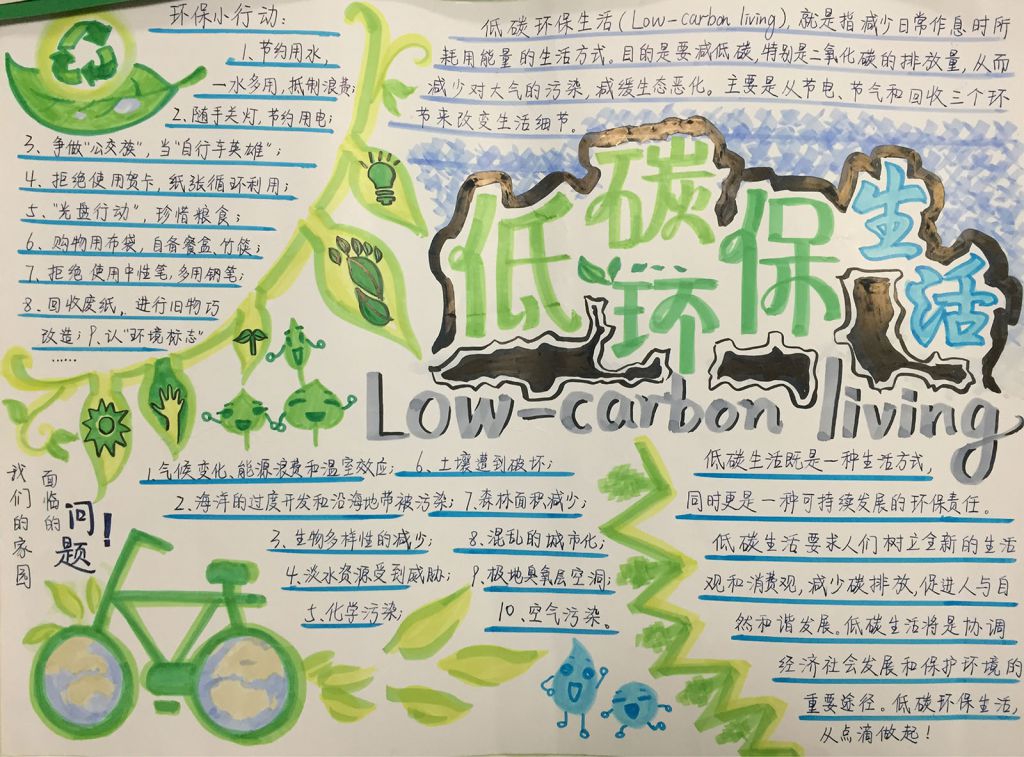 环保小行动:
1、节约用水,
一水多用,抵制浪费;
2、随手关灯,节约用电;
3、争做“公交族”,当“自行车英雄”;
4、拒绝使用贺卡,纸张循环利用;
5、“光盘行动”,珍惜粮食;
6、购物用布袋,自备餐盒、竹筷;
7、拒绝使用中性笔,多用钢笔;
8、回收废纸,进行旧物巧
改造;9、认“环境标志”
……
低碳环保生活(Low-carbon living),就是指减少日常作息时所
耗用能量的生活方式。目的是要减低碳,特别是二氧化碳的排放量,从而
减少对大气的污染,减缓生态恶化。主要是从节电、节气和回收三个环
节来改变生活细节。
低碳环保生活
Low-carbon living
我们的家园
面临的
问题!
1.气候变化、能源浪费和温室效应;
2.海洋的过度开发和沿海地带被污染;
3、生物多样性的减少;
4.淡水资源受到威胁;
5、化学污染;
6、土壤遭到破坏;
7.森林面积减少;
8.混乱的城市化;
9.极地臭氧层空洞;
10、空气污染。
低碳生活既是一种生活方式,
同时更是一种可持续发展的环保责任。
低碳生活要求人们树立全新的生活
观和消费观,减少碳排放,促进人与自
然和谐发展。低碳生活将是协调
经济社会发展和保护环境的
重要途径。低碳环保生活,
从点滴做起!